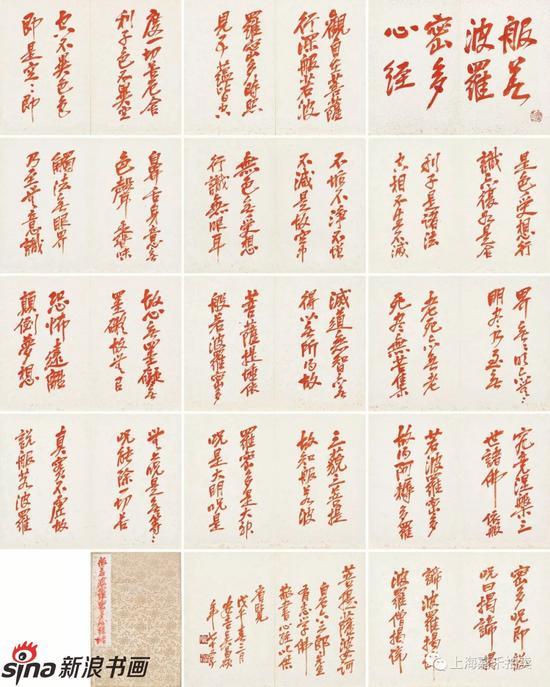 般若
波羅
密多
心经
觀自在菩薩
行深般若波
羅密多時照
見五蘊皆空
度一切苦厄舍
利子色不異空
空不異色色
即是空〻即
是色受想行
識亦復如是舍
利子是諸法
空相不生不滅
不垢不淨不增
不減是故空中
無色無受想
行識無眼耳
鼻舌身意無
色聲香味
觸法無眼界
乃至無意識
界無無明亦無〻
明盡乃至無
老死亦無老
死盡無苦集
滅道無智亦無
得以無所得故
菩薩提埵依
般若波羅密多
故心無罣礙無
罣礙故無有
恐怖遠離
顛倒夢想
究竟涅槃三
世諸佛依般
若波羅密多
故得阿耨多羅
三藐三菩提
故知般若波
羅密多是大神
呪是大明呪是
無上呪是無等〻
呪能除一切苦
真實不虛故
說般若波羅
密多呪即說
呪曰揭諦揭
諦波羅揭諦
波羅僧揭諦
菩提薩婆訶
白石六三郎先生
有志學佛
敬書心經以供
省覽
戊午春三月
安吉吳昌碩
年七十五
般若波羅密多心經
sina新浪书画
上海嘉禾拍卖